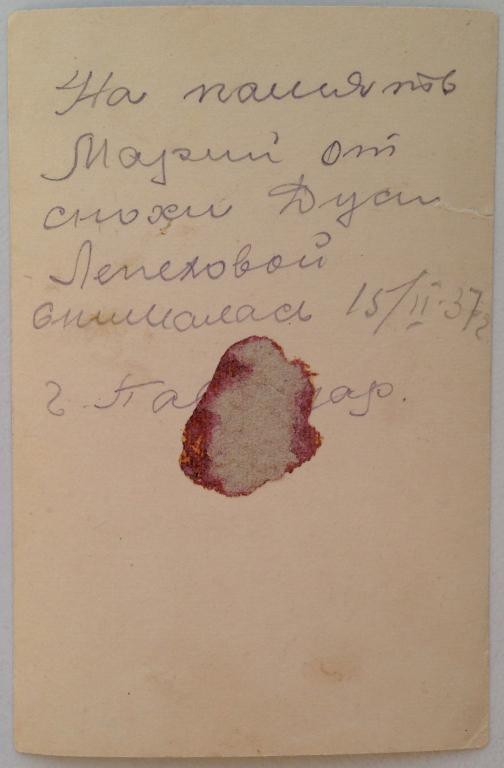 На память
Марии от
снохи Дуси
Лепеховой
снималась 15/II-37г
г. Пав дар.